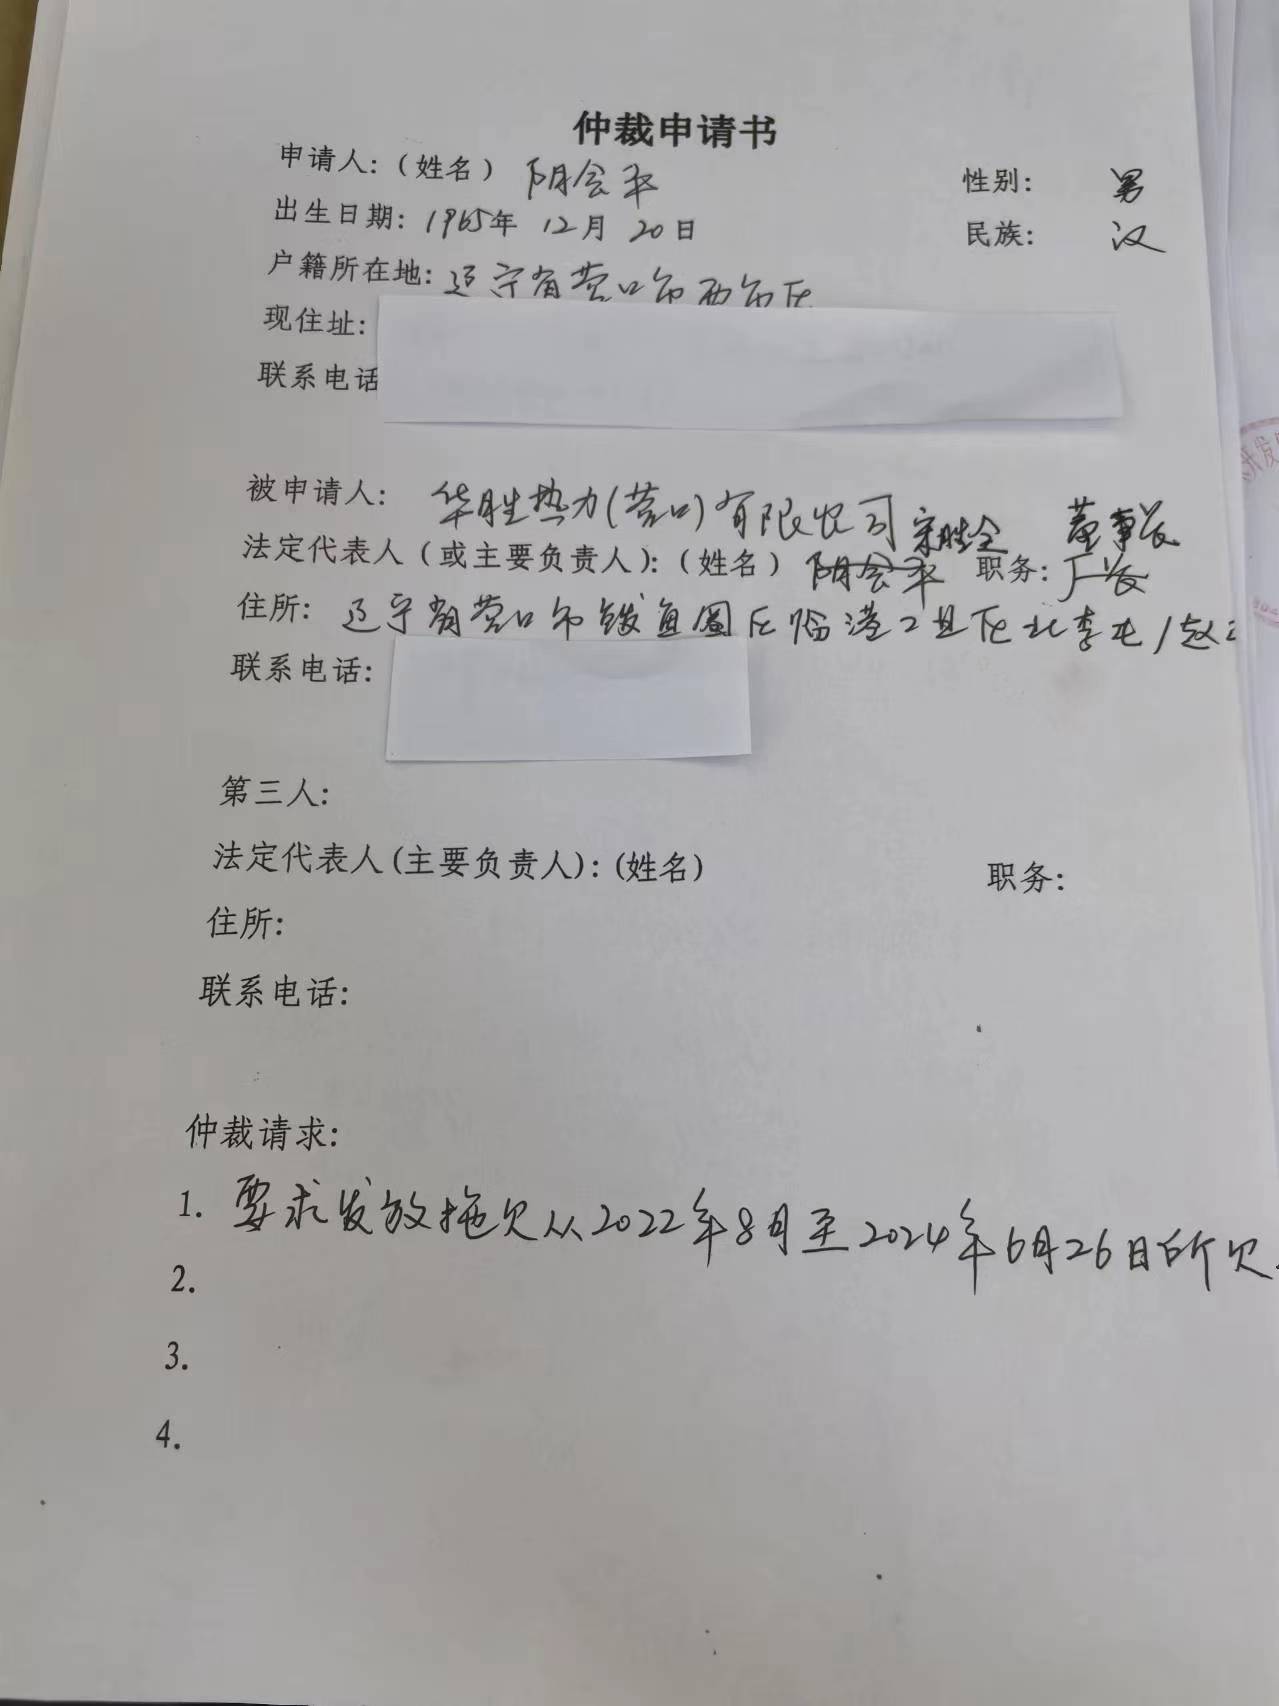 仲裁申请书
申请人:(姓名) 阴会平 性别: 男
出生日期: 1965年 12月 20日 民族: 汉
户籍所在地: 辽宁省营口市西市区
现住址:
联系电话
被申请人: 华胜热力(营口)有限公司
宋胜全 董事长
法定代表人(或主要负责人):(姓名) 阴会平 职务: 厂长
住所: 辽宁省营口市鲅鱼圈区临港工业区北李屯/赵
联系电话:
第三人:
法定代表人(主要负责人):(姓名) 职务:
住所:
联系电话:
仲裁请求:
1. 要求发放拖欠从2022年8月至2024年6月26日所欠
2.
3.
4.
开发